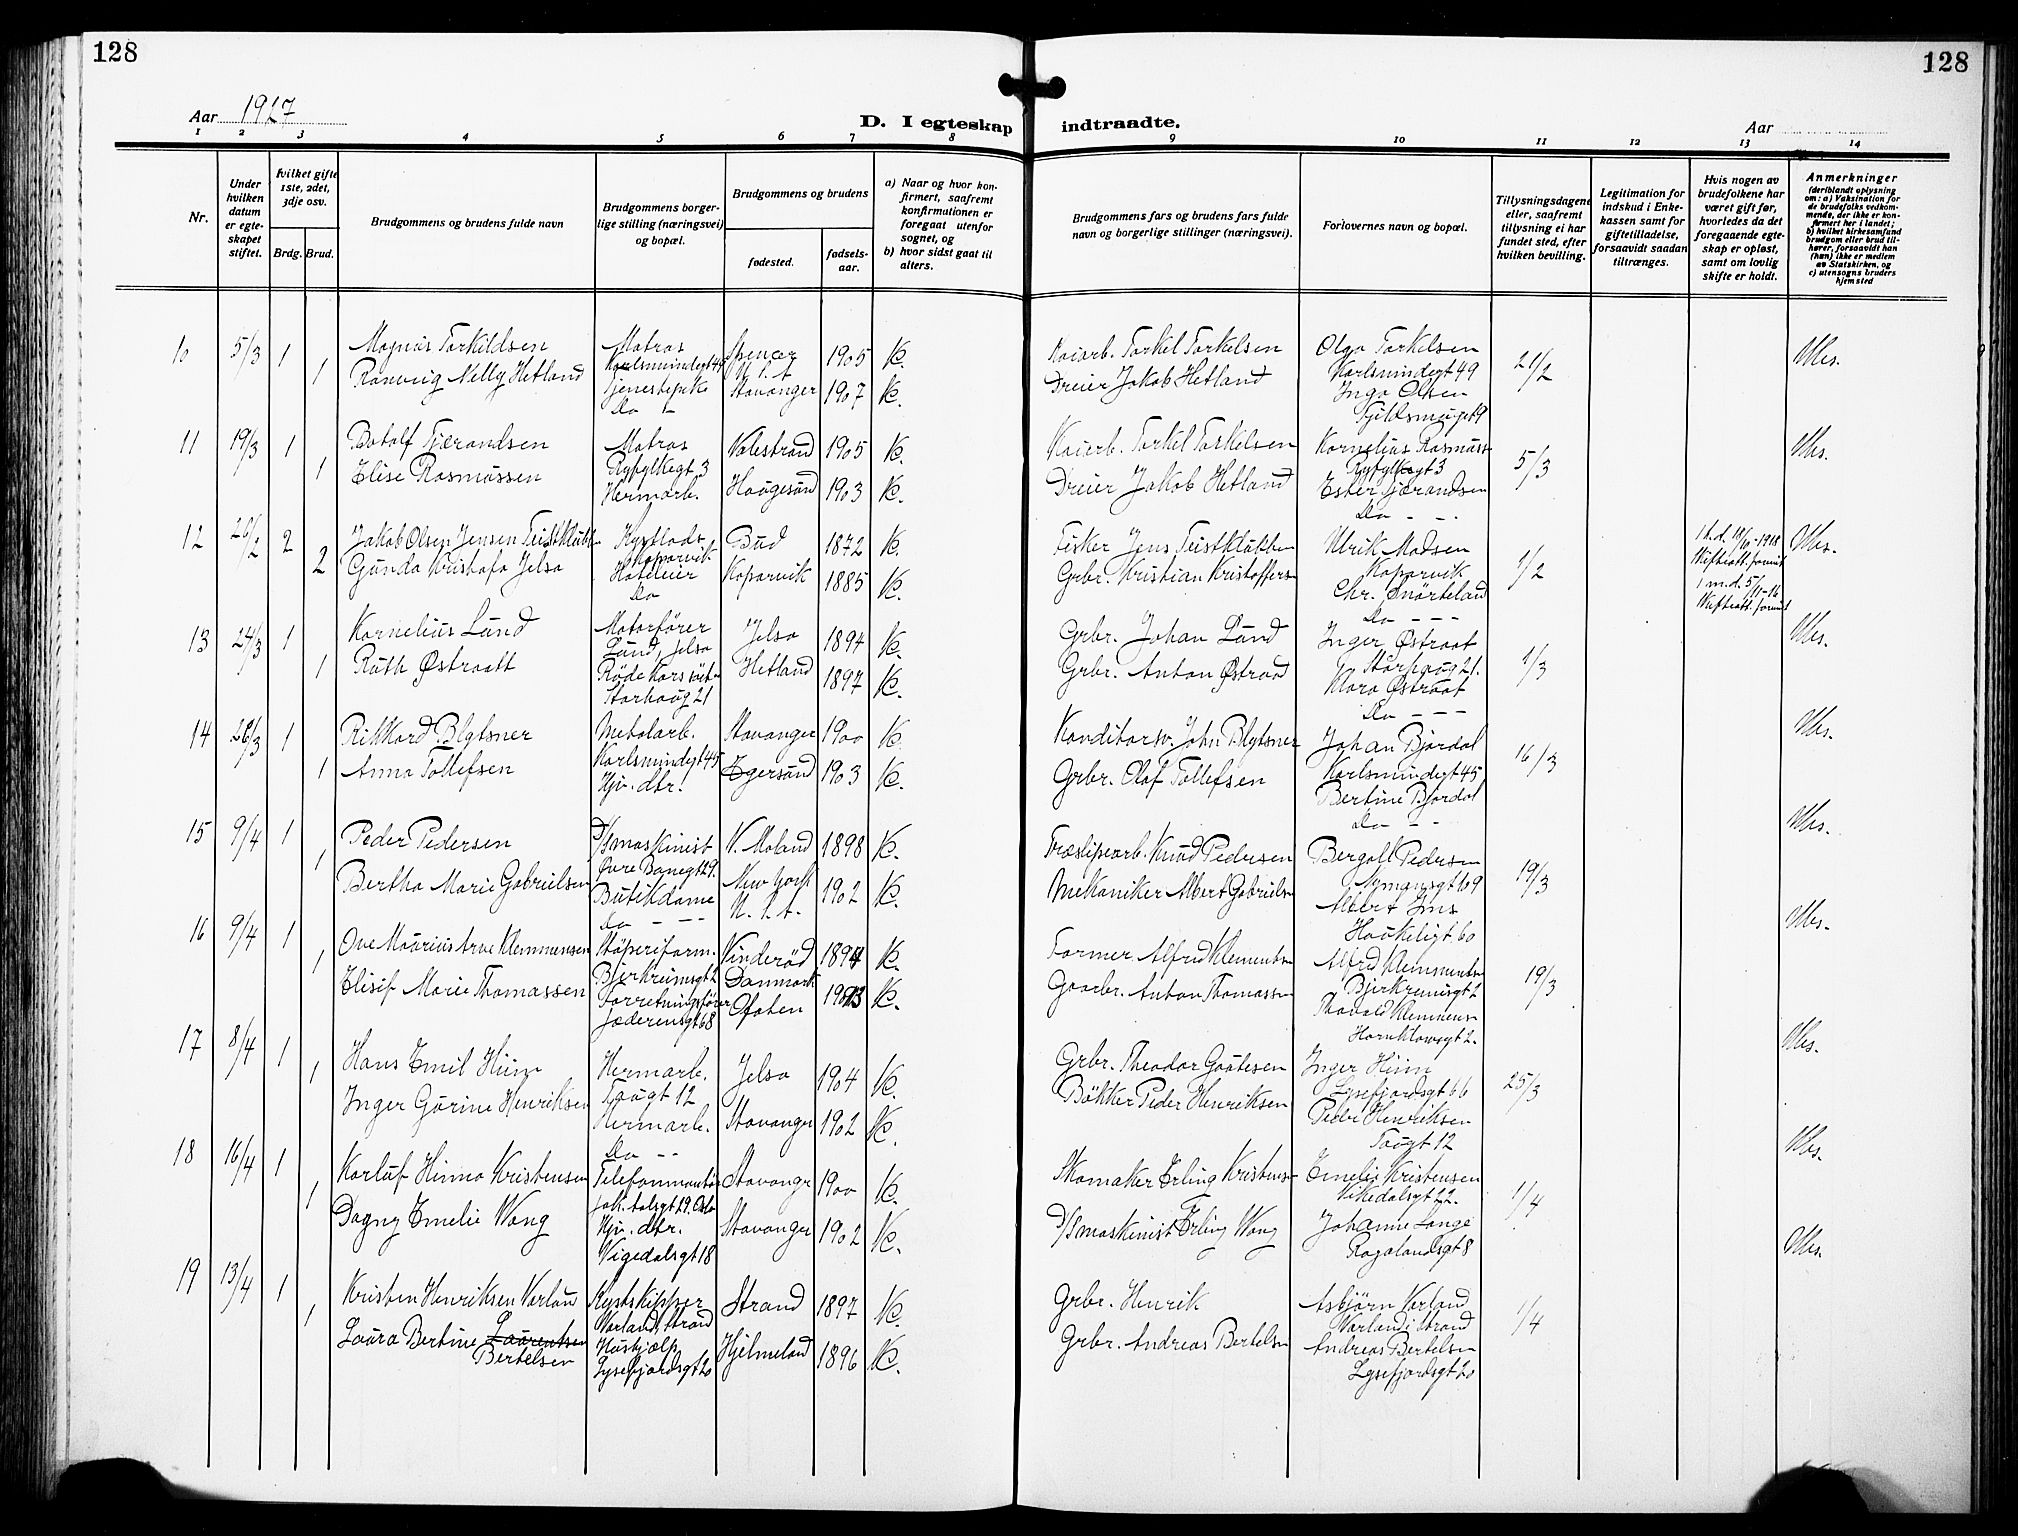 128
128
Aar 1927
D. I egteskap indtraadte.
Aar
1 2 3 4 5 6 7 8 9 10 11 12 13 14
Nr.
Under hvilken datum er egteskapet stiftet.
hvilket gifte 1ste, 2det, 3dje osv.
Brdg. Brud.
Brudgommens og brudens fulde navn
Brudgommens borgerlige stilling (næringsvei) og bopæl.
Brudgommens og brudens
fødested.
fødselsaar.
a) Naar og hvor konfirmert, saafremt konfirmationen er foregaat utenfor sognet, og
b) hvor sidst gaat til alters.
Brudgommens fars og brudens fars fulde navn og borgerlige stillinger (næringsvei).
Forlovernes navn og bopæl.
Tillysningsdagene eller, saafremt tillysning ei har fundet sted, efter hvilken bevilling.
Legitimation for indskud i Enkekassen samt for giftetilladelse, forsaavidt saadan tiltrænges.
Hvis nogen av brudefolkene har været gift før, hvorledes da det foregaaende egteskap er opløst, samt om lovlig skifte er holdt.
Anmerkninger
(deriblandt oplysning om: a) Vaksination for de brudefolks vedkommende, der ikke er konfirmert her i landet;
b) hvilket kirkesamfund brudgom eller brud tilhører, forsaavidt han (hun) ikke er medlem av Statskirken, og
c) utensogns bruders hjemsted
10 5/3 1 Magnus Torkildsen Matros Spencer 1905 K. Kaiarb. Torkel Torkelsen Olga Torkelsen 21/2
Karlsminnegt 45 U.S.A Karlsmindegt 49
1 Ranveig Nelly Hetland Tjenestepik Stavanger 1907 K. Dreier Jakob Hetland Inga Olsen
Do
11 19/3 1 Botolf Tjærandsen Matros Valestrand 1905 K. Kaiarb. Torkel Torkelsen Kornelius Rasmuss 5/3
Ryfylkegt 3 Ryfylkegt 3
1 Elise Rasmussen Hermarb. Haugesund 1903 K. Dreier Jakob Hetland Ester Tjærandsen
Do
12 26/2 2 Jakob Olsen Jensen Teistklubb Kystlods Bud 1872 K. Fisker Jens Teistklubben Ulrik Madsen 1/2 1 h.d. 18/9-1918
Koparvik Koparvik Skifteatt. forevist
2 Gunda Kristofa Jelsa Hoteleier Koparvik 1885 K. Grbr. Kristian Kristoffers Chr. Snörteland 1 m.d. 5/11-16
Do Do Skifteatt. forevist
13 24/3 1 Kornelius Lund Motorfører Jelsa 1894 K. Grbr. Johan Lund Inger Østraat 1/3
Lund, Jelsa Storhaug 21.
1 Ruth Østraatt Röde Kors söst. Hetland 1897 K. Grbr. Anton Østraad Klara Østraat
Storhaug 21 Do
14 26/3 1 Rikkard Blytsner Metalarb. Stavanger 1900 K. Konditorsv. John Blytsner Johan Bjordal 16/3
Karlsmindegt 45 Karlsmindegt 45
1 Anna Tollefsen Hjv. dtr. Egersund 1903 K. Grbr. Olaf Tollefsen Bertine Bjordal
Do
15 9/4 1 Peder Pedersen D/Smaskinist V. Moland 1898 K. Træslipearb. Knud Pedersen Bergall Pedersen 19/3
Øvre Banegt 29. Nymansgt 109
1 Bertha Marie Gabrielsen Butikdame New York 1902 K. Mekaniker Albert Gabrielsn Albert Ims
Do U.S.A. Haukeligt. 60
16 9/4 1 Ove Maurius Arve Klemmensen Støperiform. Vinderød 1894 K. Former Alfred Klementsn Alfred Klemmentsn 19/3
Bjerkreimsgt 2 Danmark Bjerkremsgt 2
1 Elisif Marie Thomassen Forretningsfører Ofoten K. Gaarbr. Anton Thomassen Thorvald Klemmens
Jæderensgt 68 Hornklovesgt 2.
17 8/4 1 Hans Emil Hiim Hermarb. Jelsa 1904 K. Grbr. Theodor Gautesen Inger Hiim 25/3
Taugt 12 Lysefjordsgt 66
1 Inger Gurine Henriksen Hermarb. Stavanger 1902 K. Bökker Peder Henriksen Peder Henriksen
Do Taugt 12
18 16/4 1 Karluf Hinna Kristensen Telefonmontør Stavangr 1900 K. Skomaker Erling Kristensn Emelie Kristensen 1/4
Oslo Vikedalsgt 22.
1 Dagny Emelie Wang Hjv. dtr. Stavanger 1902 K. D/Smaskinist Erling Wang Johanne Lange
Vigedalsgt 18 Rogalandsgt 8
19 13/4 1 Kristen Henriksen Varland Kystskipper Strand 1897 K. Grbr. Henrik Asbjørn Varland 1/4
Varland, Strand Varland i Strand
1 Laura Bertine Laurentsen Bertelsen Hushjælp Hjelmeland 1896 K. Grbr. Andreas Bertelsn Andreas Bertelsn
Lysefjordsgt 20 Lysefjordsgt 20